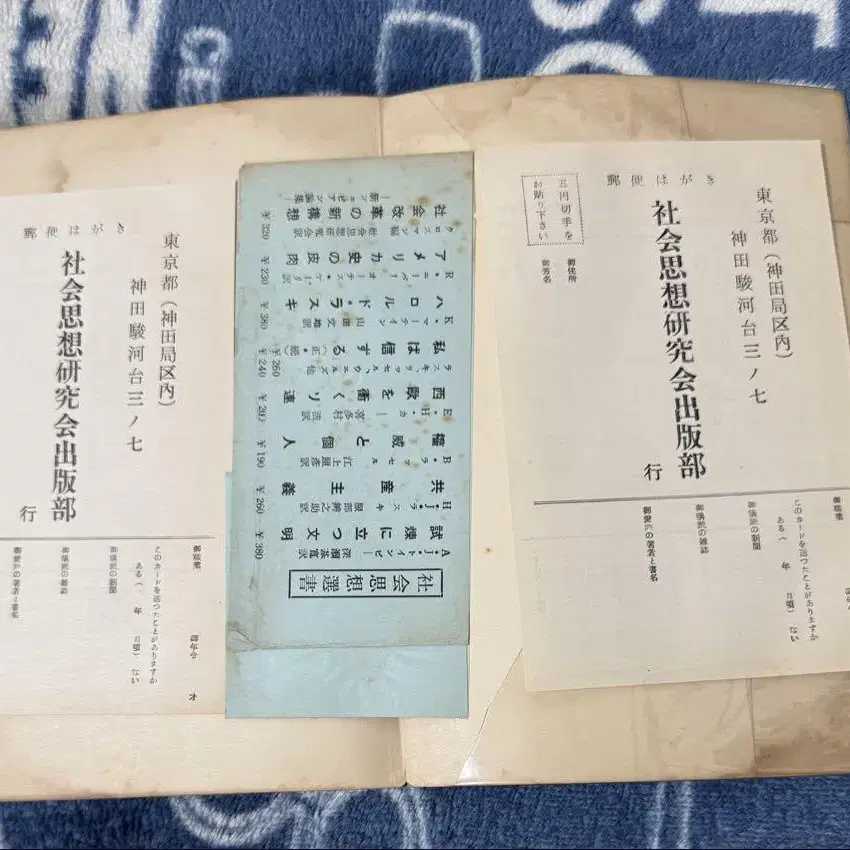 郵便はがき
東京都（神田局区内）
神田駿河台三ノ七
社会思想研究会出版部
行
御職業
御年令　才
このカードを送つたことがありますか
ある（　年　月頃）ない
御購読の新聞
御購読の雑誌
御愛読の著者と書名
社会思想選書
A・J・トインビー 深瀬基寛訳
試煉に立つ文明 ￥380
H・J・ラスキ 服部辨之助訳
共産主義 ￥260
B・ラッセル 江上照彦訳
権威と個人 ￥190
E・H・カー 喜多村浩訳
西欧を衝くソ連 ￥200
ラスキ、ラッセル、ウェルズ他
私は信ずる（正・続） ￥260 ￥240
K・マーティン 山田文雄訳
ハロルド・ラスキ ￥380
R・ニーバー オーチス・ケーリ訳
アメリカ史の皮肉 ￥230
クロスマン編 社会思想研究会訳
社会改革の新構想 ￥320
―新フェビアン論集―
郵便はがき
五円切手を
お貼り下さい
東京都（神田局区内）
神田駿河台三ノ七
社会思想研究会出版部
行
御住所
御芳名
御職業
このカードを送つたことがありますか
ある（　年　月頃）ない
御購読の新聞
御購読の雑誌
御愛読の著者と書名